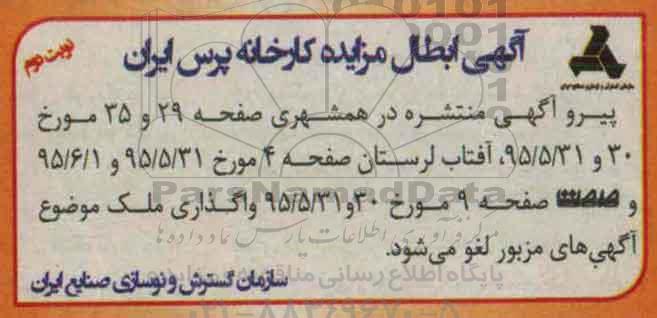 نوبت دوم
آگهی ابطال مزایده کارخانه پرس ایران
سازمان گسترش و نوسازی صنایع ایران
پیرو آگهی منتشره در همشهری صفحه ۲۹ و ۳۵ مورخ
۳۰ و ۹۵/۵/۳۱، آفتاب لرستان صفحه ۴ مورخ ۹۵/۵/۳۱ و ۹۵/۶/۱
و صفحه ۹ مورخ ۳۰و۹۵/۵/۳۱ واگذاری ملک موضوع
آگهی‌های مزبور لغو می‌شود.
سازمان گسترش و نوسازی صنایع ایران
ParsNamadData
مرکز فرآوری اطلاعات پارس نماد داده ها
پایگاه اطلاع رسانی
۰۲۱-۸۸۳۴۹۶۷۰-۵